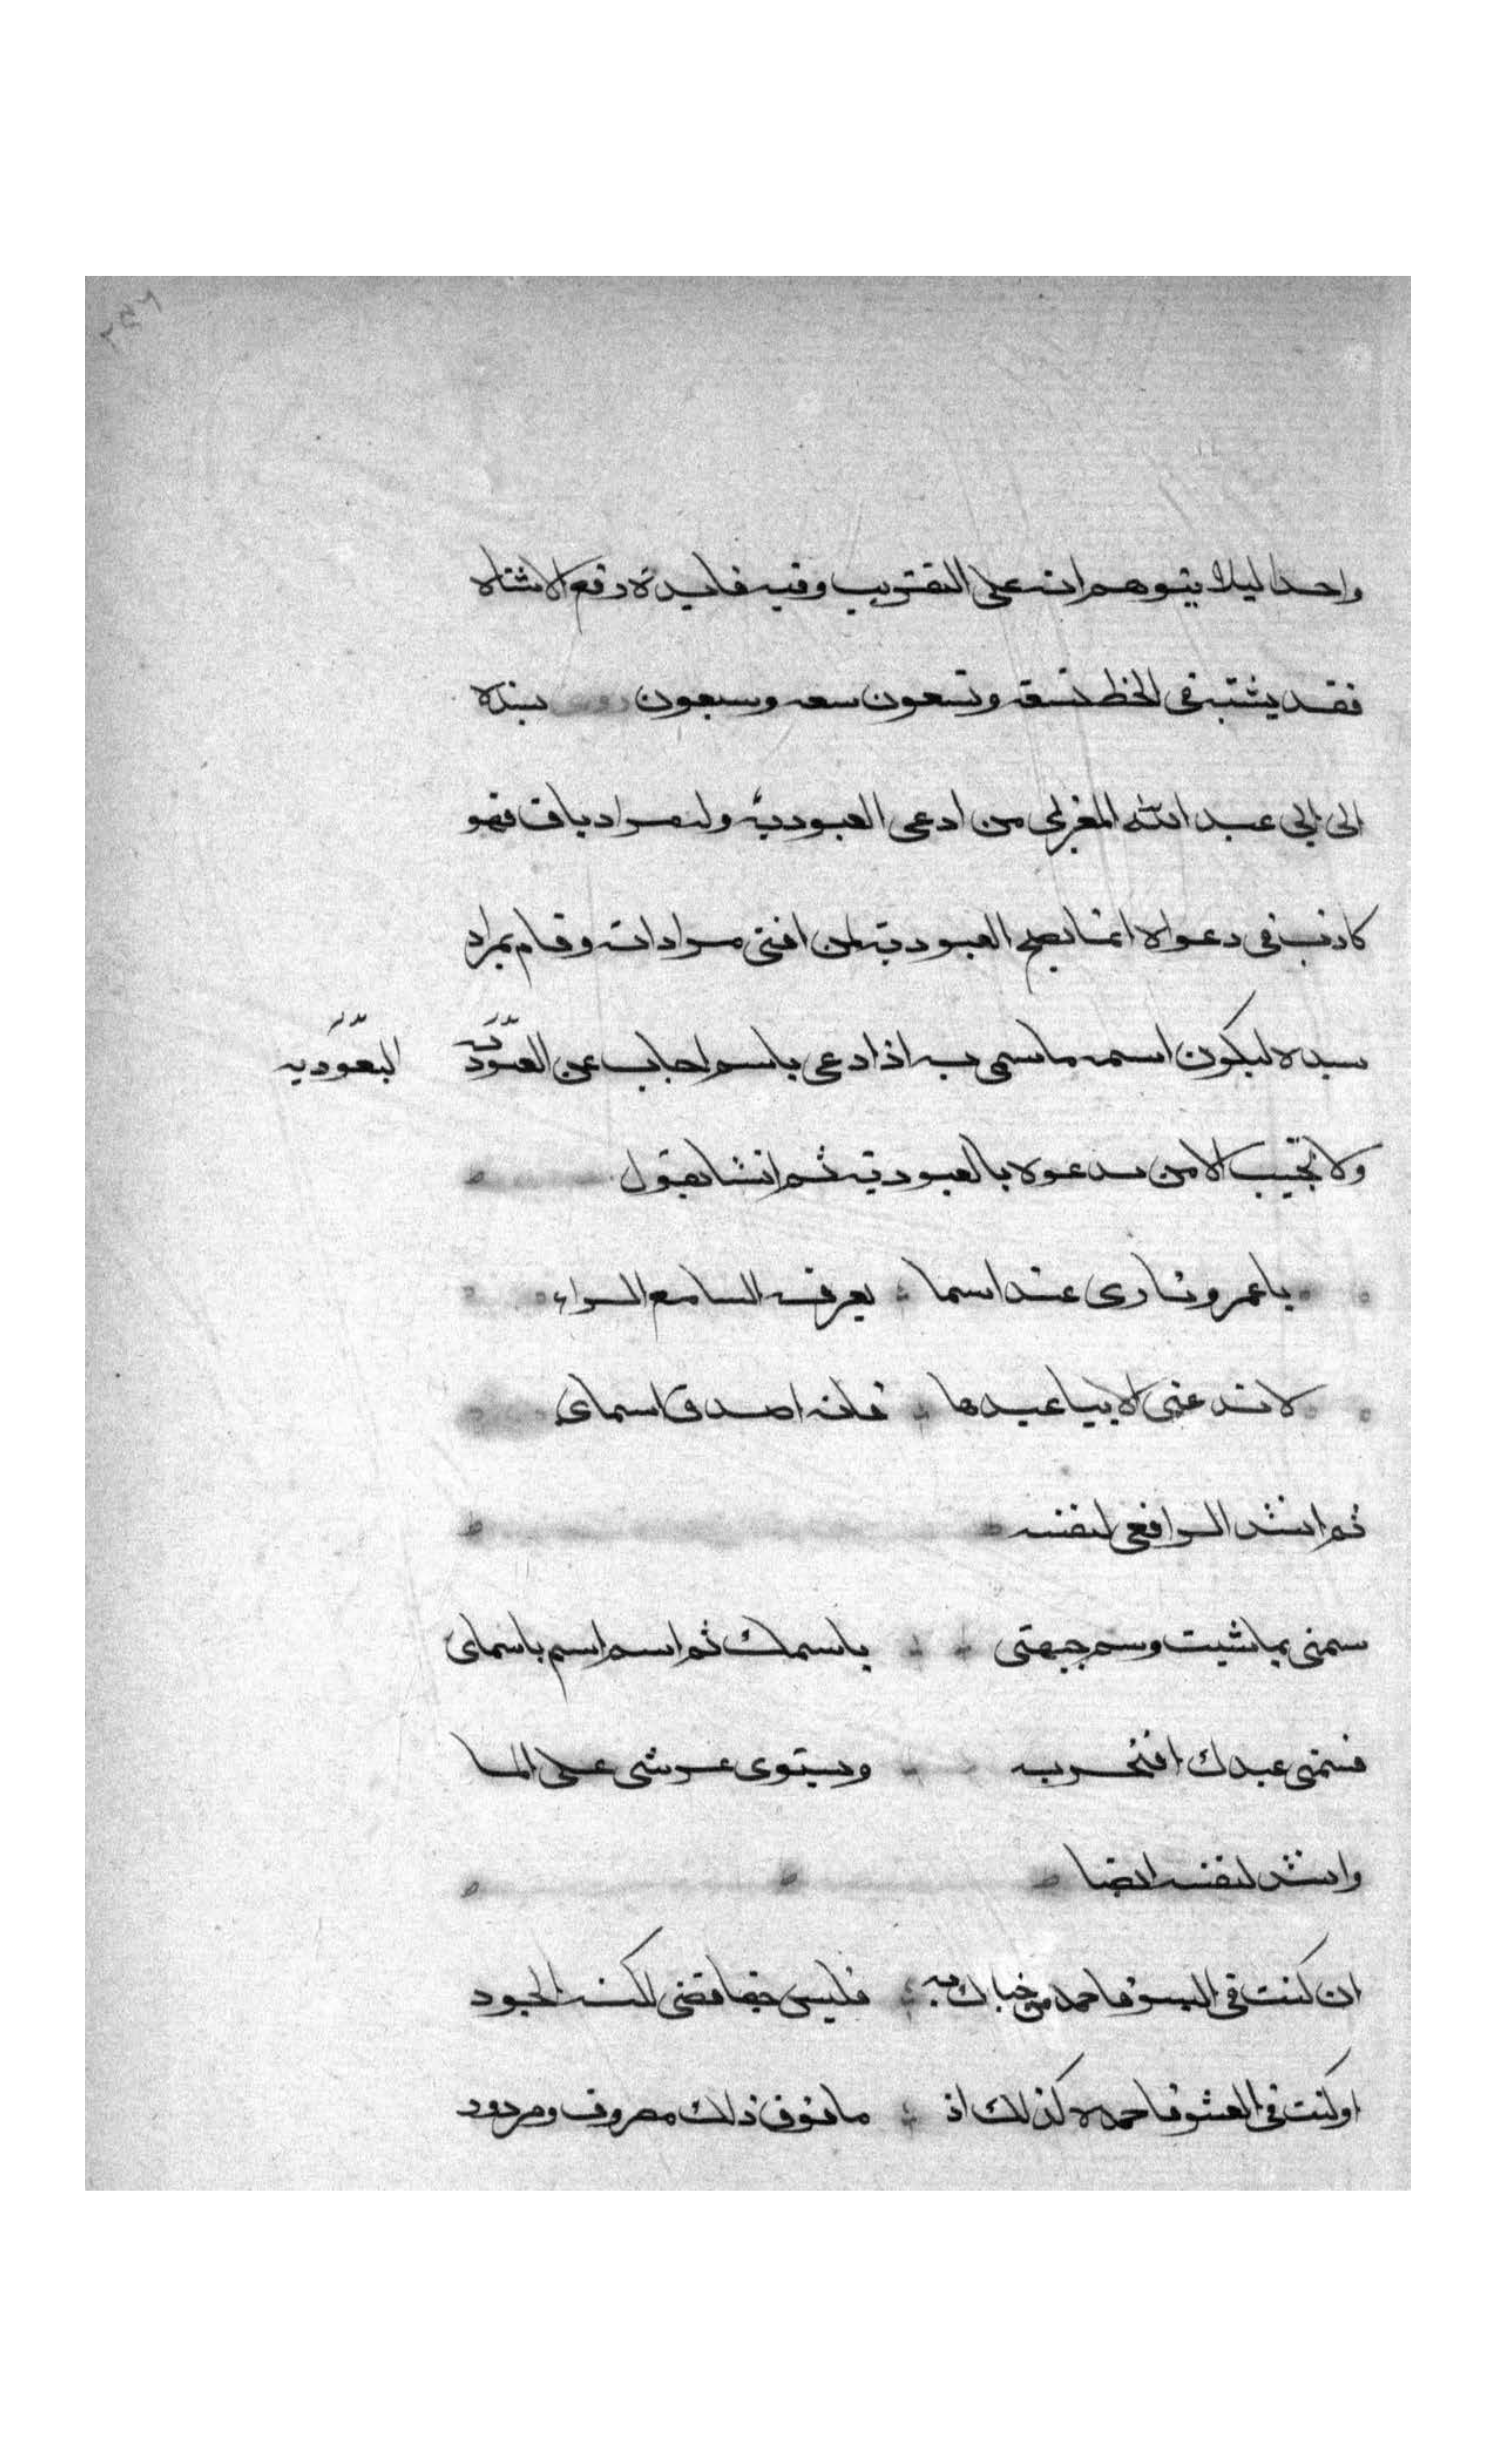 واحدا ليلا يتوهم انه على التقريب وفيه فايدة دفع الاشتباه
فقد يشتبه في الخط تسعة وتسعون سعه وسبعون بنده
الى ابي عبد الله المغربي من ادعى العبودية وله مراد باق فهو
كاذب في دعواه انما يصح العبودية لمن افنى مراداته وقام بمراد
سيده ليكون اسمه ما سمي به اذا دعي باسم اجاب عن العبودية
العبودية
ولا يجيب الا من يدعوه بالعبودية ثم انشا يقول
يا عمرو ثارى عند اسما يعرفه السامع الراء
لا تدعني الا بيا عبدها فانه اصدق اسماى
ثم انشد الرافعي لنفسه
سمني بما شيت وسم جبهتي باسمك ثم اسم اسم باسماى
فسمني عبدك افتخر به ويستوى عرشي على الما
وانشد لنفسه ايضا
ان كنت في اليسر فاحمد من حباك به فليس حقا قضى لكنه الجود
او كنت في العسر فاحمده كذلك اذ ما فوق ذلك مصروف ومردود